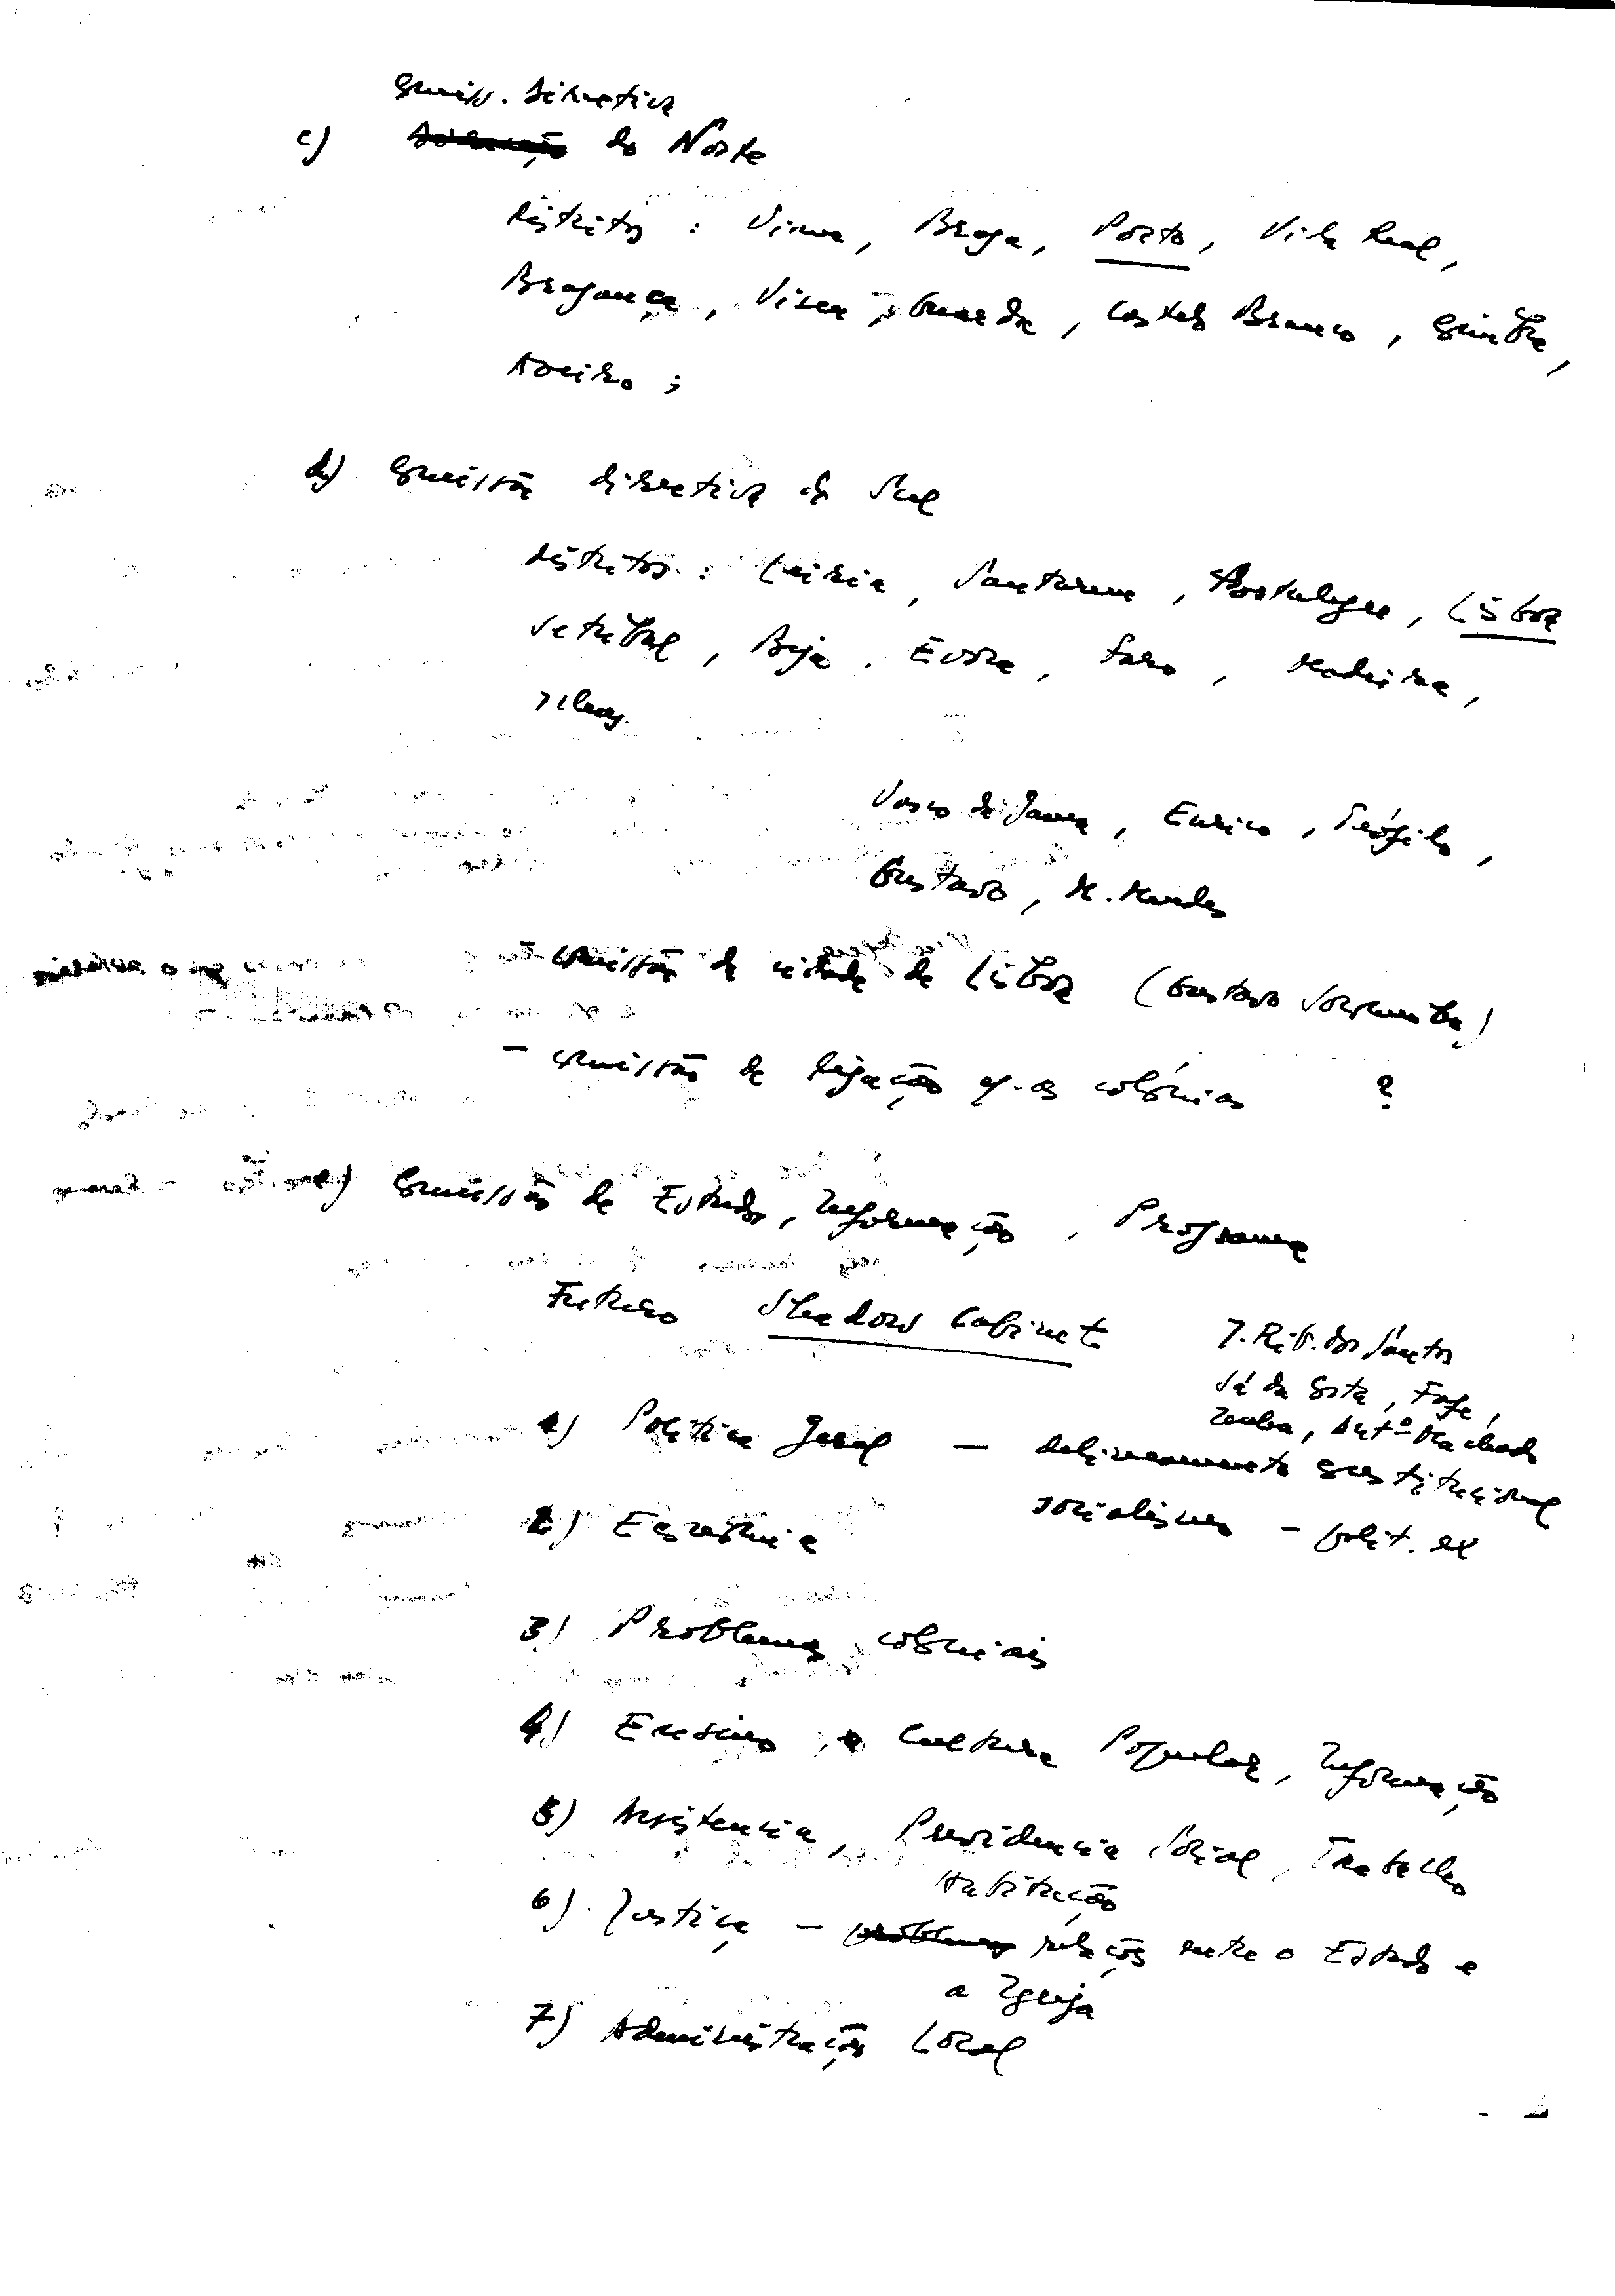 Comiss. Directiva
c) do Norte
distritos : Viana, Braga, Porto, Vila Real,
Bragança, Viseu, Guarda, Castelo Branco, Coimbra,
Aveiro ;
d) Comissão directiva do Sul
distritos : Leiria, Santarem, Portalegre, Lisboa
Setubal, Beja, Evora, Faro, Madeira,
Ilhas
Vasco da Gama, Eurico, Teófilo,
Gustavo, M. Mendes
- comissão da cidade de Lisboa (Gustavo Soromenho)
- comissão de ligação c/ as colónias ?
e) Comissão de Estudos, Informação, Programa
Futuro Shadow Cabinet
J. Rib. dos Santos
Sá da Costa, Fafe,
Zenha, Antº Machado
1) Politica Geral - delineamento constitucional
socialismo - polit. ex
2) Economia
3) Problemas coloniais
4) Ensino, e Cultura Popular, Informação
5) Assistencia, Previdencia Social, Trabalho
Habitação
6) Justiça - problemas relações entre o Estado e
a Igreja
7) Administração Local